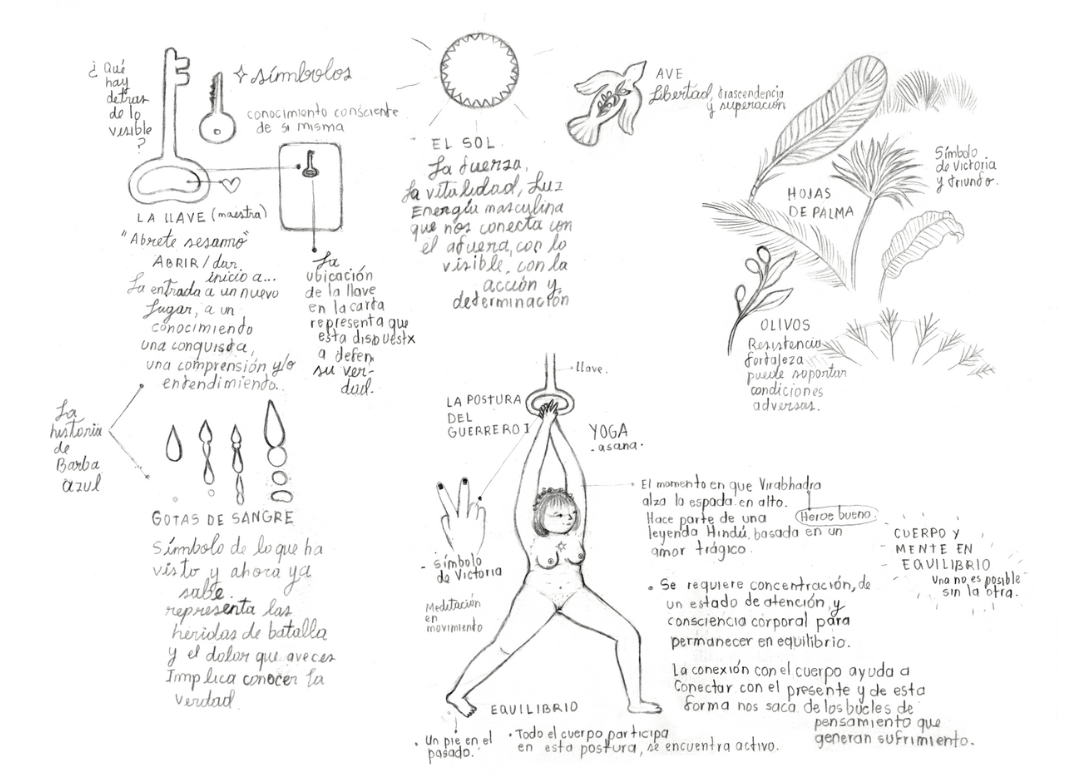 ¿Qué
hay
detras
de lo
visible
?
símbolos
conocimiento consciente
de si misma
LA LLAVE (maestra)
"Abrete sesamo"
ABRIR / dar
inicio a...
La entrada a un nuevo
lugar, a un
conocimiento
una conquista,
una comprensión y/o
entendimiento..
La
ubicación
de la llave
en la carta
representa que
esta dispuestx
a defen
su ver-
dad.
La
historia
de
Barba
azul
GOTAS DE SANGRE
Símbolo de lo que ha
visto y ahora ya
sabe.
representa las
heridas de batalla
y el dolor que aveces
Implica conocer la
verdad.
EL SOL.
La fuerza,
la vitalidad, Luz
Energía masculina
que nos conecta con
el afuera, con lo
visible, con la
acción y
determinación
AVE
Libertad, trascendencia
y superación
HOJAS
DE PALMA
Símbolo
de Victoria
y triunfo.
OLIVOS
Resistencia
fortaleza
puede soportar
condiciones
adversas.
llave.
LA POSTURA
DEL
GUERRERO I
YOGA
- asana -
- símbolo
de Victoria
Meditación
en
movimiento
El momento en que Virabhadra
alza la espada en alto.
Hace parte de una
leyenda Hindú, basada en un
amor trágico.
Heroe bueno.
CUERPO Y
MENTE EN
EQUILIBRIO
Una no es posible
sin la otra.
• Se requiere concentración, de
un estado de atención y
consciencia corporal para
permanecer en equilibrio.
La conexión con el cuerpo ayuda a
Conectar con el presente y de esta
forma nos saca de los bucles de
pensamiento que
generan sufrimiento.
EQUILIBRIO
• Un pie en el
pasado.
• Todo el cuerpo participa
en esta postura, se encuentra activo.